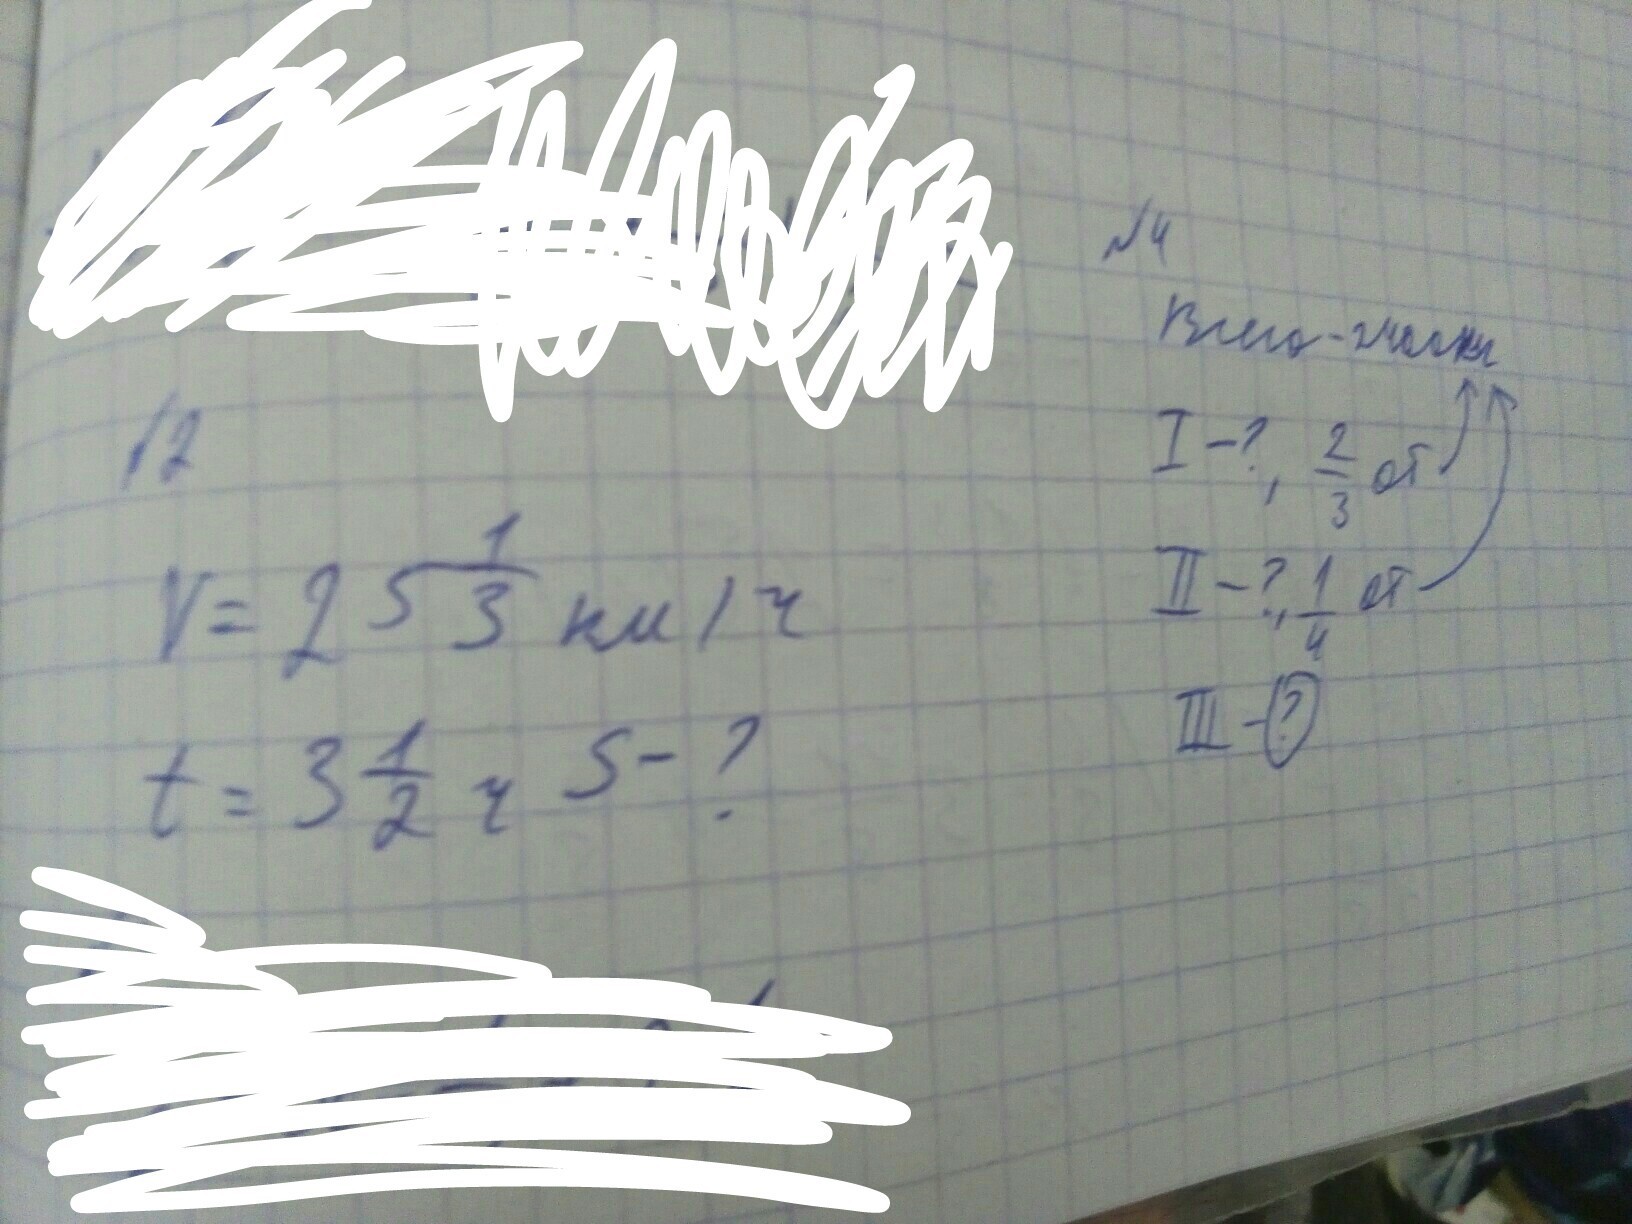 №2
V = 25 1/3 км/ч
t = 3 1/2 ч S - ?
№4
Всего - участки
I - ?, 2/3 от
II - ?, 1/4 от
III - ?